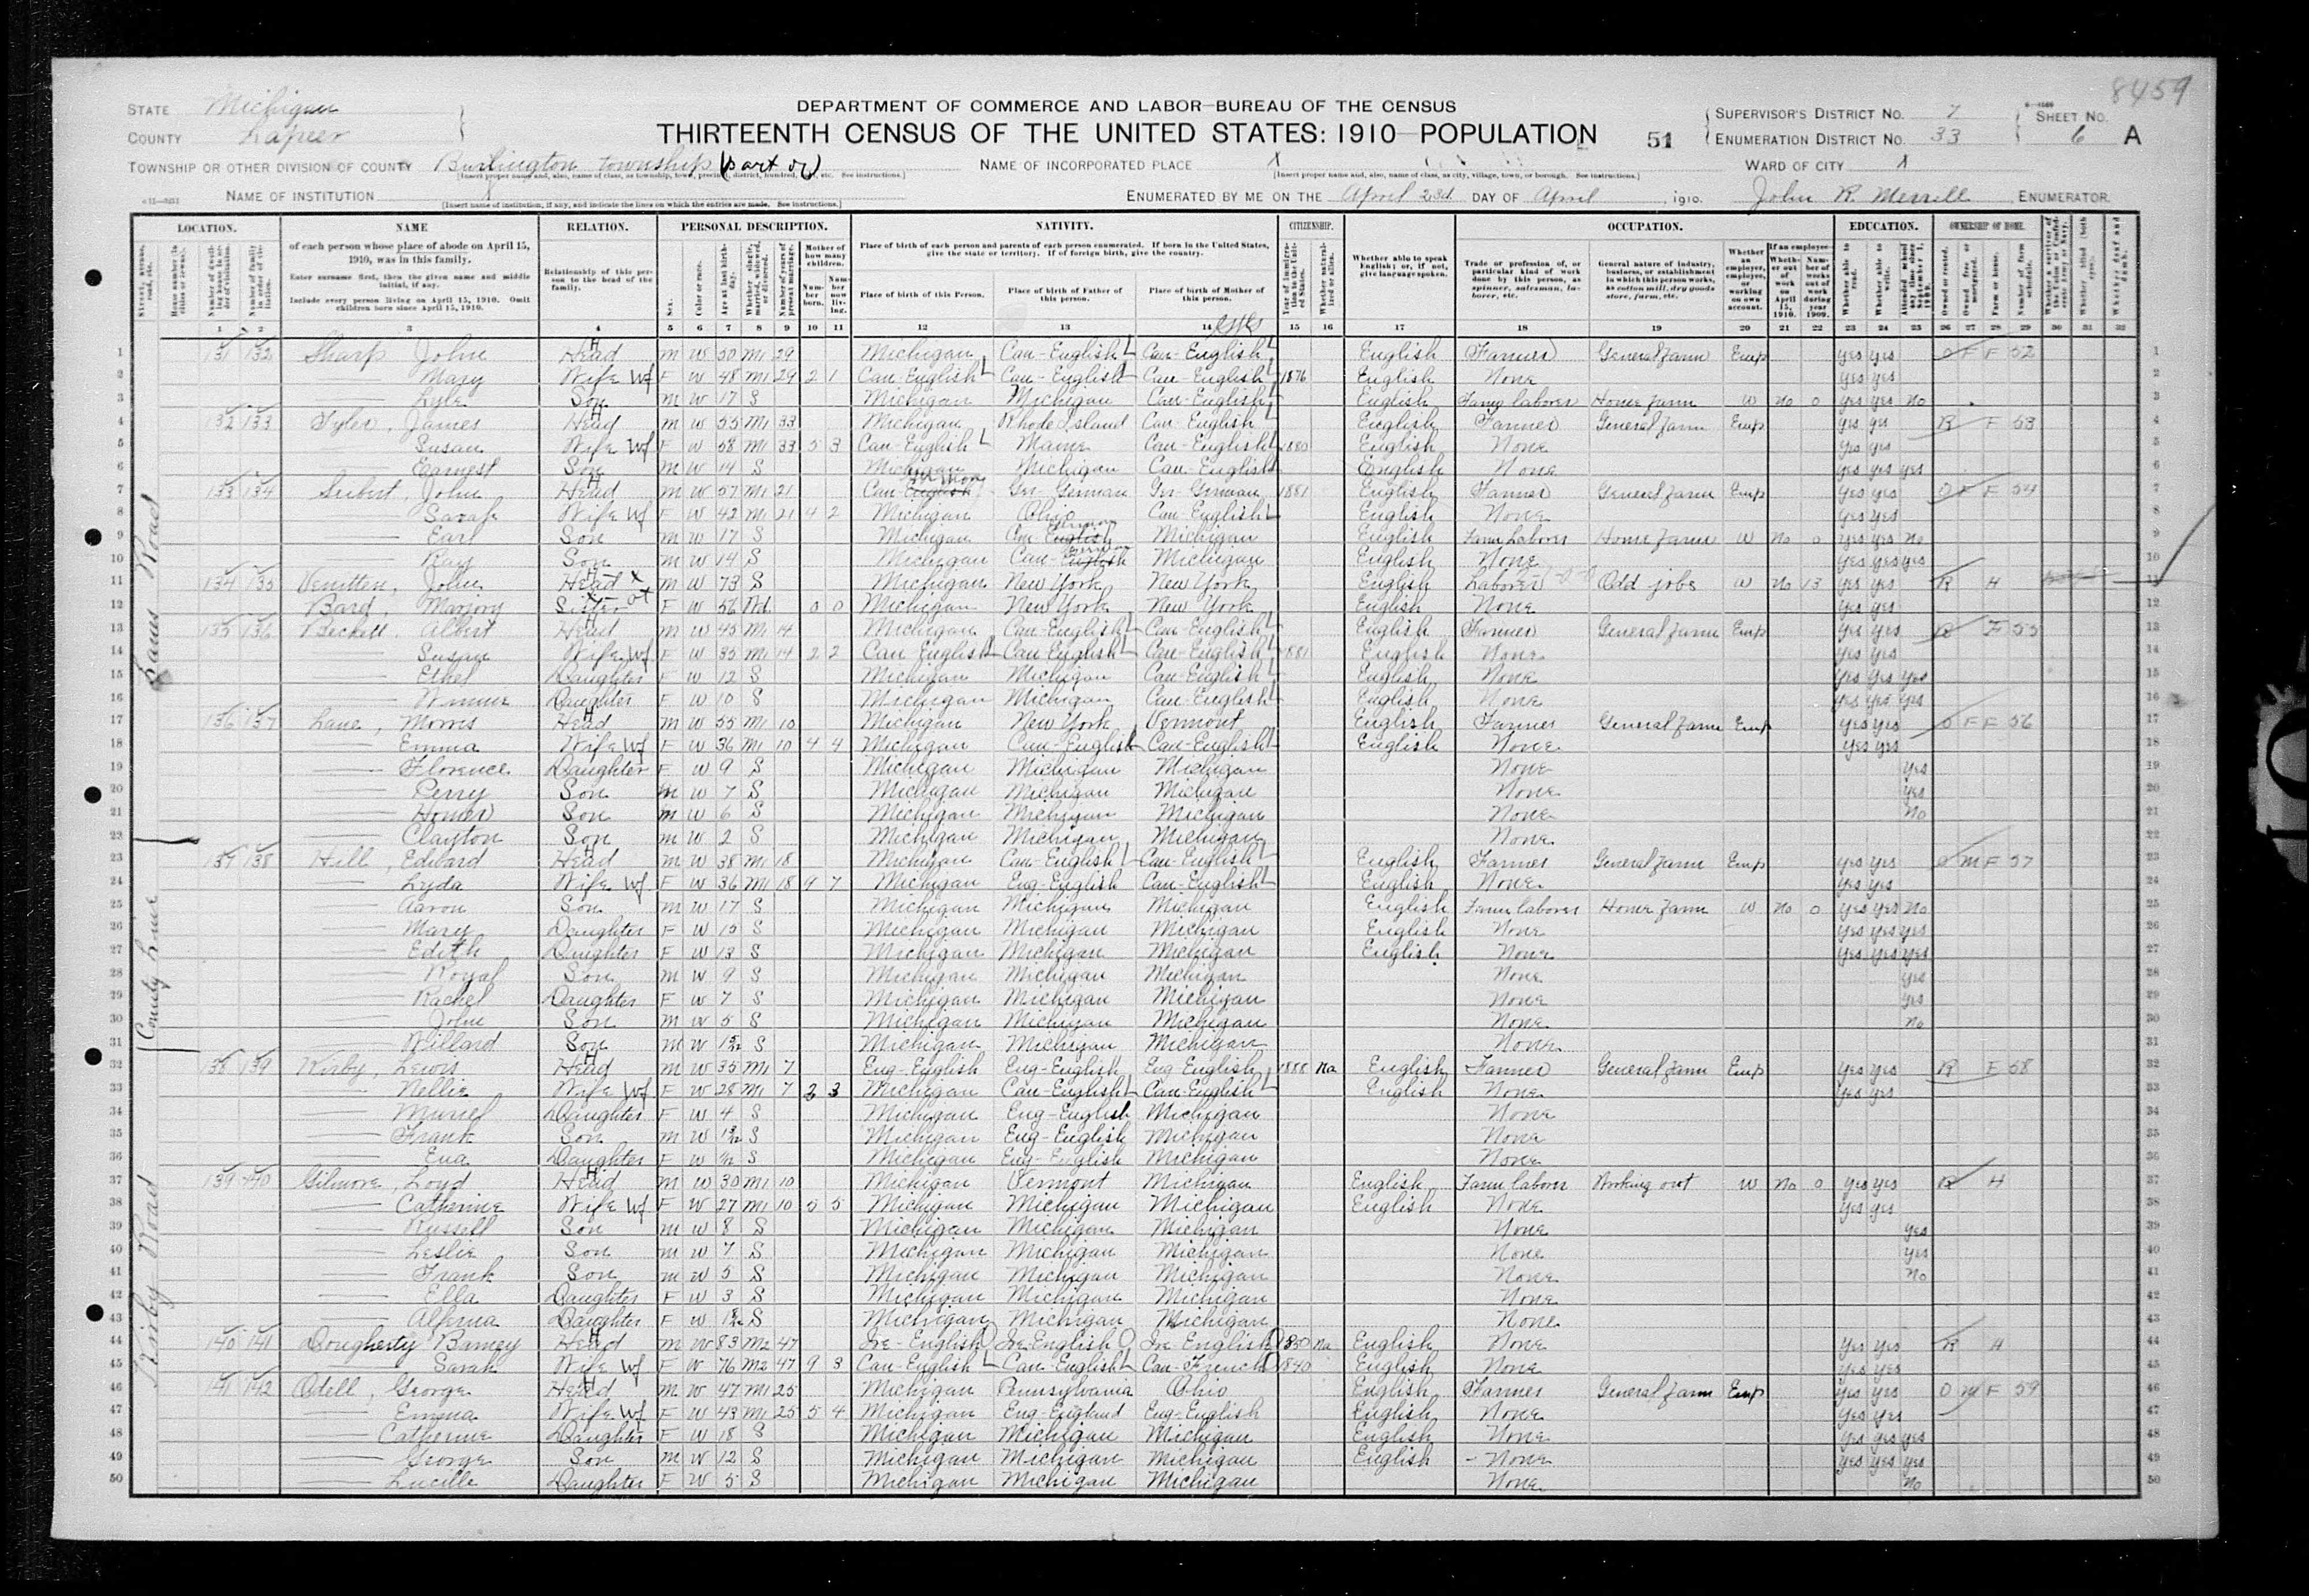 8459
STATE Michigan
COUNTY Lapeer
DEPARTMENT OF COMMERCE AND LABOR—BUREAU OF THE CENSUS
THIRTEENTH CENSUS OF THE UNITED STATES: 1910—POPULATION
51
SUPERVISOR'S DISTRICT NO. 7
ENUMERATION DISTRICT NO. 33
SHEET NO. 6 A
TOWNSHIP OR OTHER DIVISION OF COUNTY Burlington township (part of)
NAME OF INCORPORATED PLACE X
WARD OF CITY X
NAME OF INSTITUTION X
ENUMERATED BY ME ON THE April 23d DAY OF April, 1910. John R. Merrill ENUMERATOR.
LOCATION. NAME RELATION. PERSONAL DESCRIPTION. NATIVITY. CITIZENSHIP. OCCUPATION. EDUCATION. OWNERSHIP OF HOME.
of each person whose place of abode on April 15, 1910, was in this family.
Enter surname first, then the given name and middle initial, if any.
Include every person living on April 15, 1910. Omit children born since April 15, 1910.
Relationship of this person to the head of the family.
Place of birth of each person and parents of each person enumerated. If born in the United States, give the state or territory. If of foreign birth, give the country.
Place of birth of this Person. Place of birth of Father of this person. Place of birth of Mother of this person.
Whether able to speak English; or, if not, give language spoken.
1 2 3 4 5 6 7 8 9 10 11 12 13 14 15 16 17 18 19 20 21 22 23 24 25 26 27 28 29 30 31 32
Lams Road
County Line
Kirby Road
1 131 132 Sharp John Head m w 50 M1 29 Michigan Can-English Can-English English Farmer General farm Emp yes yes O F F 52
2 Mary Wife F w 48 M1 29 2 1 Can-English Can-English Can-English 1876 English None yes yes
3 Lyle Son m w 17 S Michigan Michigan Can-English English Farm laborer Home farm W no 0 yes yes no
4 132 133 Tyler, James Head m w 55 M1 33 Michigan Rhode Island Can-English English Farmer General farm Emp yes yes R F 53
5 Susan Wife F w 58 M1 33 5 3 Can-English Maine Can-English 1880 English None yes yes
6 Earnest Son m w 14 S Michigan Michigan Can-English English None yes yes yes
7 133 134 Seibert, John Head m w 57 M1 21 Can-English German Ger-German Ger-German 1881 English Farmer General farm Emp yes yes O F F 54
8 Sarah Wife F w 42 M1 21 4 2 Michigan Ohio Can-English English None yes yes
9 Earl Son m w 17 S Michigan Can-English German Michigan English Farm laborer Home farm W no 0 yes yes no
10 Ray Son m w 14 S Michigan Can-English German Michigan English None yes yes yes
11 134 135 John Head m w 73 S Michigan New York New York English Laborer Odd jobs W no 13 yes yes R H
12 Bard, Marjory Sister F w 56 Wd 0 0 Michigan New York New York English None yes yes
13 135 136 Beckett, Albert Head m w 45 M1 14 Michigan Can-English Can-English English Farmer General farm Emp yes yes R F 55
14 Susan Wife F w 35 M1 14 2 2 Can English Can-English Can-English 1881 English None yes yes
15 Ethel Daughter F w 12 S Michigan Michigan Can-English English None yes yes yes
16 Winnie Daughter F w 10 S Michigan Michigan Can-English English None yes yes yes
17 136 137 Lane, Morris Head m w 55 M1 10 Michigan New York Vermont English Farmer General farm Emp yes yes O F F 56
18 Emma Wife F w 36 M1 10 4 4 Michigan Can-English Can-English English None yes yes
19 Florence Daughter F w 9 S Michigan Michigan Michigan None yes
20 Perry Son m w 7 S Michigan Michigan Michigan None yes
21 Homer Son m w 6 S Michigan Michigan Michigan None no
22 Clayton Son m w 2 S Michigan Michigan Michigan None
23 137 138 Hill, Edward Head m w 38 M1 18 Michigan Can-English Can-English English Farmer General farm Emp yes yes O M F 57
24 Lyda Wife F w 36 M1 18 9 7 Michigan Eng-English Can-English English None yes yes
25 Aaron Son m w 17 S Michigan Michigan Michigan English Farm laborer Home farm W no 0 yes yes no
26 Mary Daughter F w 15 S Michigan Michigan Michigan English None yes yes yes
27 Edith Daughter F w 13 S Michigan Michigan Michigan English None yes yes yes
28 Royal Son m w 9 S Michigan Michigan Michigan None yes
29 Rachel Daughter F w 7 S Michigan Michigan Michigan None yes
30 John Son m w 5 S Michigan Michigan Michigan None no
31 Willard Son m w S Michigan Michigan Michigan None
32 138 139 Kirby, Lewis Head m w 35 M1 7 Eng-English Eng-English Eng English 1888 Na English Farmer General farm Emp yes yes R F 58
33 Nellie Wife F w 28 M1 7 3 3 Michigan Can-English Can-English English None yes yes
34 Muriel Daughter F w 4 S Michigan Eng-English Michigan None
35 Frank Son m w S Michigan Eng-English Michigan None
36 Eva Daughter F w S Michigan Eng-English Michigan None
37 139 140 Gilmore, Loyd Head m w 30 M1 10 Michigan Vermont Michigan English Farm laborer Working out W no 0 yes yes R H
38 Catherine Wife F w 27 M1 10 5 5 Michigan Michigan Michigan English None yes yes
39 Russell Son m w 8 S Michigan Michigan Michigan None yes
40 Leslie Son m w 7 S Michigan Michigan Michigan None yes
41 Frank Son m w 5 S Michigan Michigan Michigan None no
42 Ella Daughter F w 3 S Michigan Michigan Michigan None
43 Daughter F w S Michigan Michigan Michigan None
44 140 141 Dougherty Barney Head m w 83 M2 47 Ire-English Ire-English Ire English 1850 Na English None yes yes R H
45 Sarah Wife F w 76 M2 47 9 3 Can-English Can-English Can-French 1840 English None yes yes
46 141 142 Odell, George Head m w 47 M1 25 Michigan Pennsylvania Ohio English Farmer General farm Emp yes yes O M F 59
47 Emma Wife F w 43 M1 25 5 4 Michigan Eng-England Eng-English English None yes yes
48 Catherine Daughter F w 18 S Michigan Michigan Michigan English None yes yes yes
49 George Son m w 12 S Michigan Michigan Michigan English None yes yes yes
50 Lucille Daughter F w 5 S Michigan Michigan Michigan None no